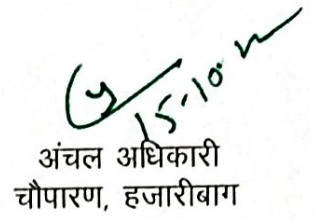 15.10.
अंचल अधिकारी
चौपारण, हजारीबाग